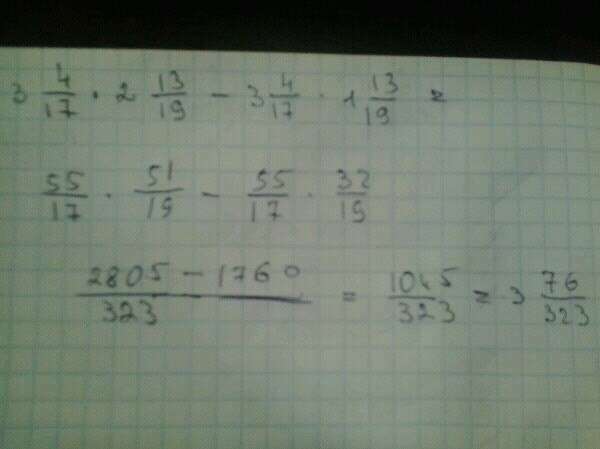 3 4/17 · 2 13/19 - 3 4/17 · 1 13/19 =
55/17 · 51/19 - 55/17 · 32/19
2805 - 1760/323 = 1045/323 = 3 76/323